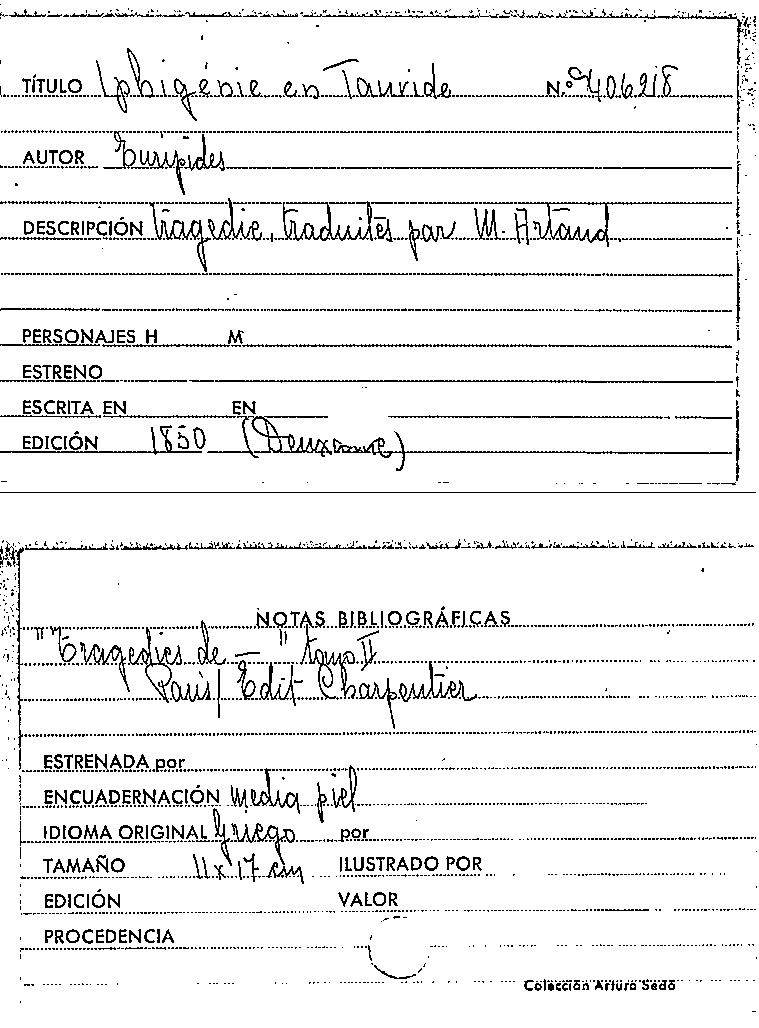 TÍTULO Iphigénie en Tauride N.º 406918
AUTOR Euripides
DESCRIPCIÓN tragedie, traduites par M. Artaud
PERSONAJES H M
ESTRENO
ESCRITA EN EN
EDICIÓN 1850 (Deuxieme)
NOTAS BIBLIOGRÁFICAS
"Tragedies de — " tomo II
Paris / Edit Charpentier
ESTRENADA por
ENCUADERNACIÓN media piel
IDIOMA ORIGINAL Griego por
TAMAÑO 11 x 17 cm ILUSTRADO POR
EDICIÓN VALOR
PROCEDENCIA
Colección Arturo Sedó